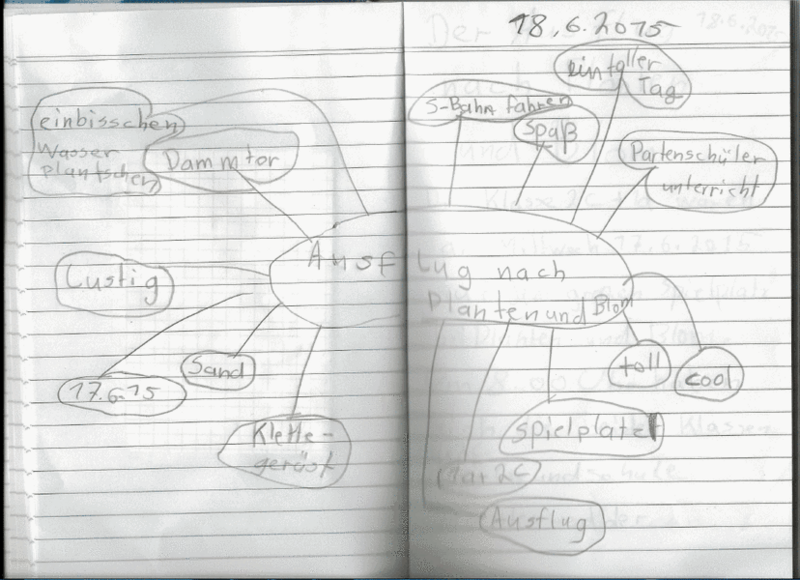 18.6.2015
ein toller
Tag
S-Bahn fahren
Spaß
Partenschüler
unterricht
einbisschen
Wasser
plantschen
Dammtor
Ausflug nach
Planten und Blom
Lustig
17.6.15
Sand
Klette-
gerüst
toll
cool
Spielplatz
2c
Ausflug